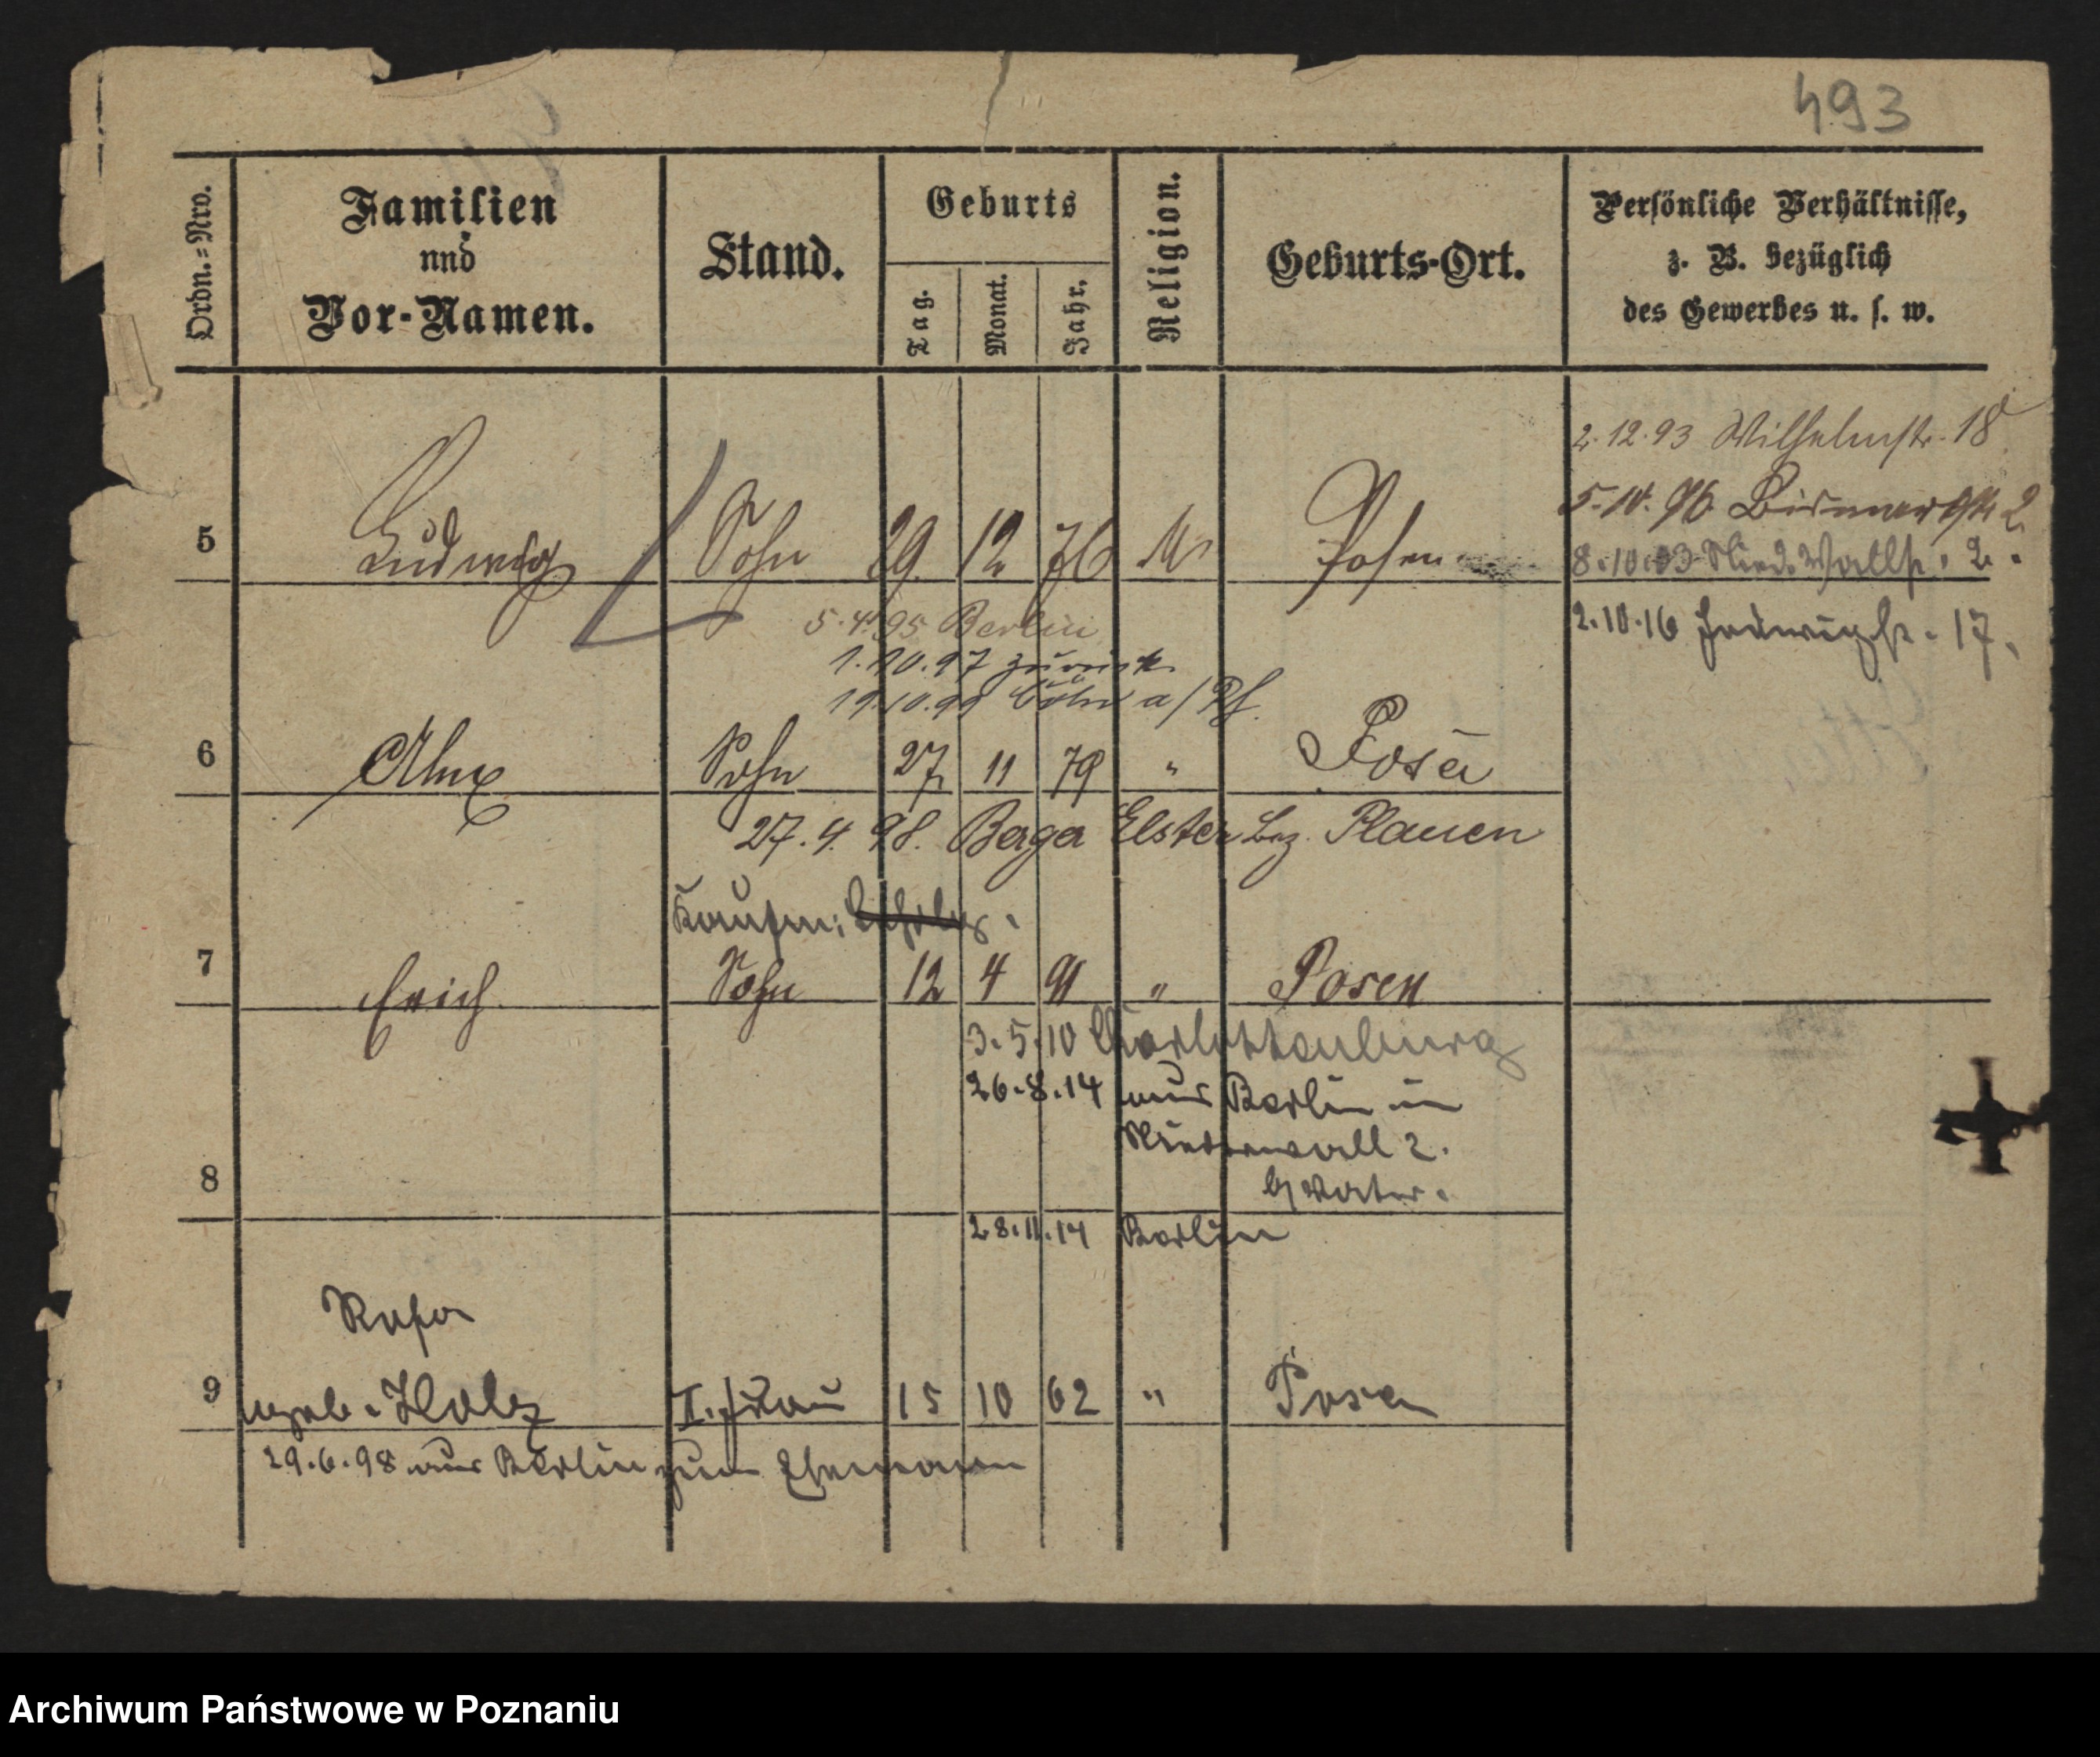 493
Ordn.=Nro.
Familien
und
Vor-Namen.
Stand.
Geburts
Tag.
Monat.
Jahr.
Religion.
Geburts-Ort.
Persönliche Verhältnisse,
z. B. bezüglich
des Gewerbes u. s. w.
2.12.93 Wilhelmstr. 18
5.10.96 Bismarckstr. 2
8.10.03 Nied. Wallstr. 2.
2.10.16 Hedwigstr. 17.
5 Ludwig Sohn 29. 12 76 Posen
5.4.95 Berlin
1.10.97 zurück
19.10.99 Cöln a/Rh.
6 Sohn 27 11 79 " Posen
27.4.98. Elster Bez. Plauen
Kaufm.
7 Erich Sohn 12 4 91 " Posen
3.5.10 Charlottenburg
26.8.14 aus Berlin in
Niederwall 2.
b/ Vater.
8
28.11.14 Berlin
Rosa
9 geb. Holz II. Frau 15 10 62 " Posen
29.6.98 aus Berlin zum Ehemann
Archiwum Państwowe w Poznaniu